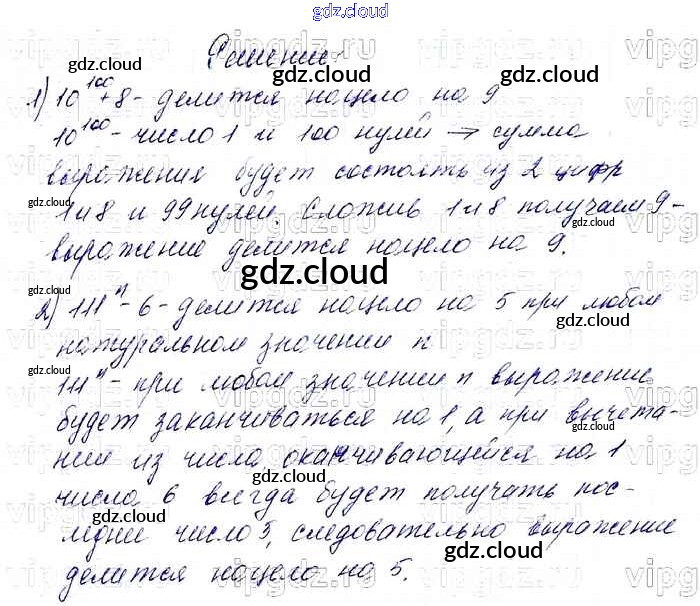 gdz.cloud
Решение.
1) 10¹⁰⁰+8 - делится нацело на 9
10¹⁰⁰ - число 1 и 100 нулей → сумма
выражения будет состоять из 2 цифр
1 и 8 и 99 нулей. Сложив 1 и 8 получаем 9 -
выражение делится нацело на 9.
2) 111ⁿ - 6 - делится нацело на 5 при любом
натуральном значении n
111ⁿ - при любом значении n выражение
будет заканчиваться на 1, а при вычета-
нии из числа, оканчивающейся на 1
числа 6 всегда будет получать пос-
леднее число 5, следовательно выражение
делится нацело на 5.